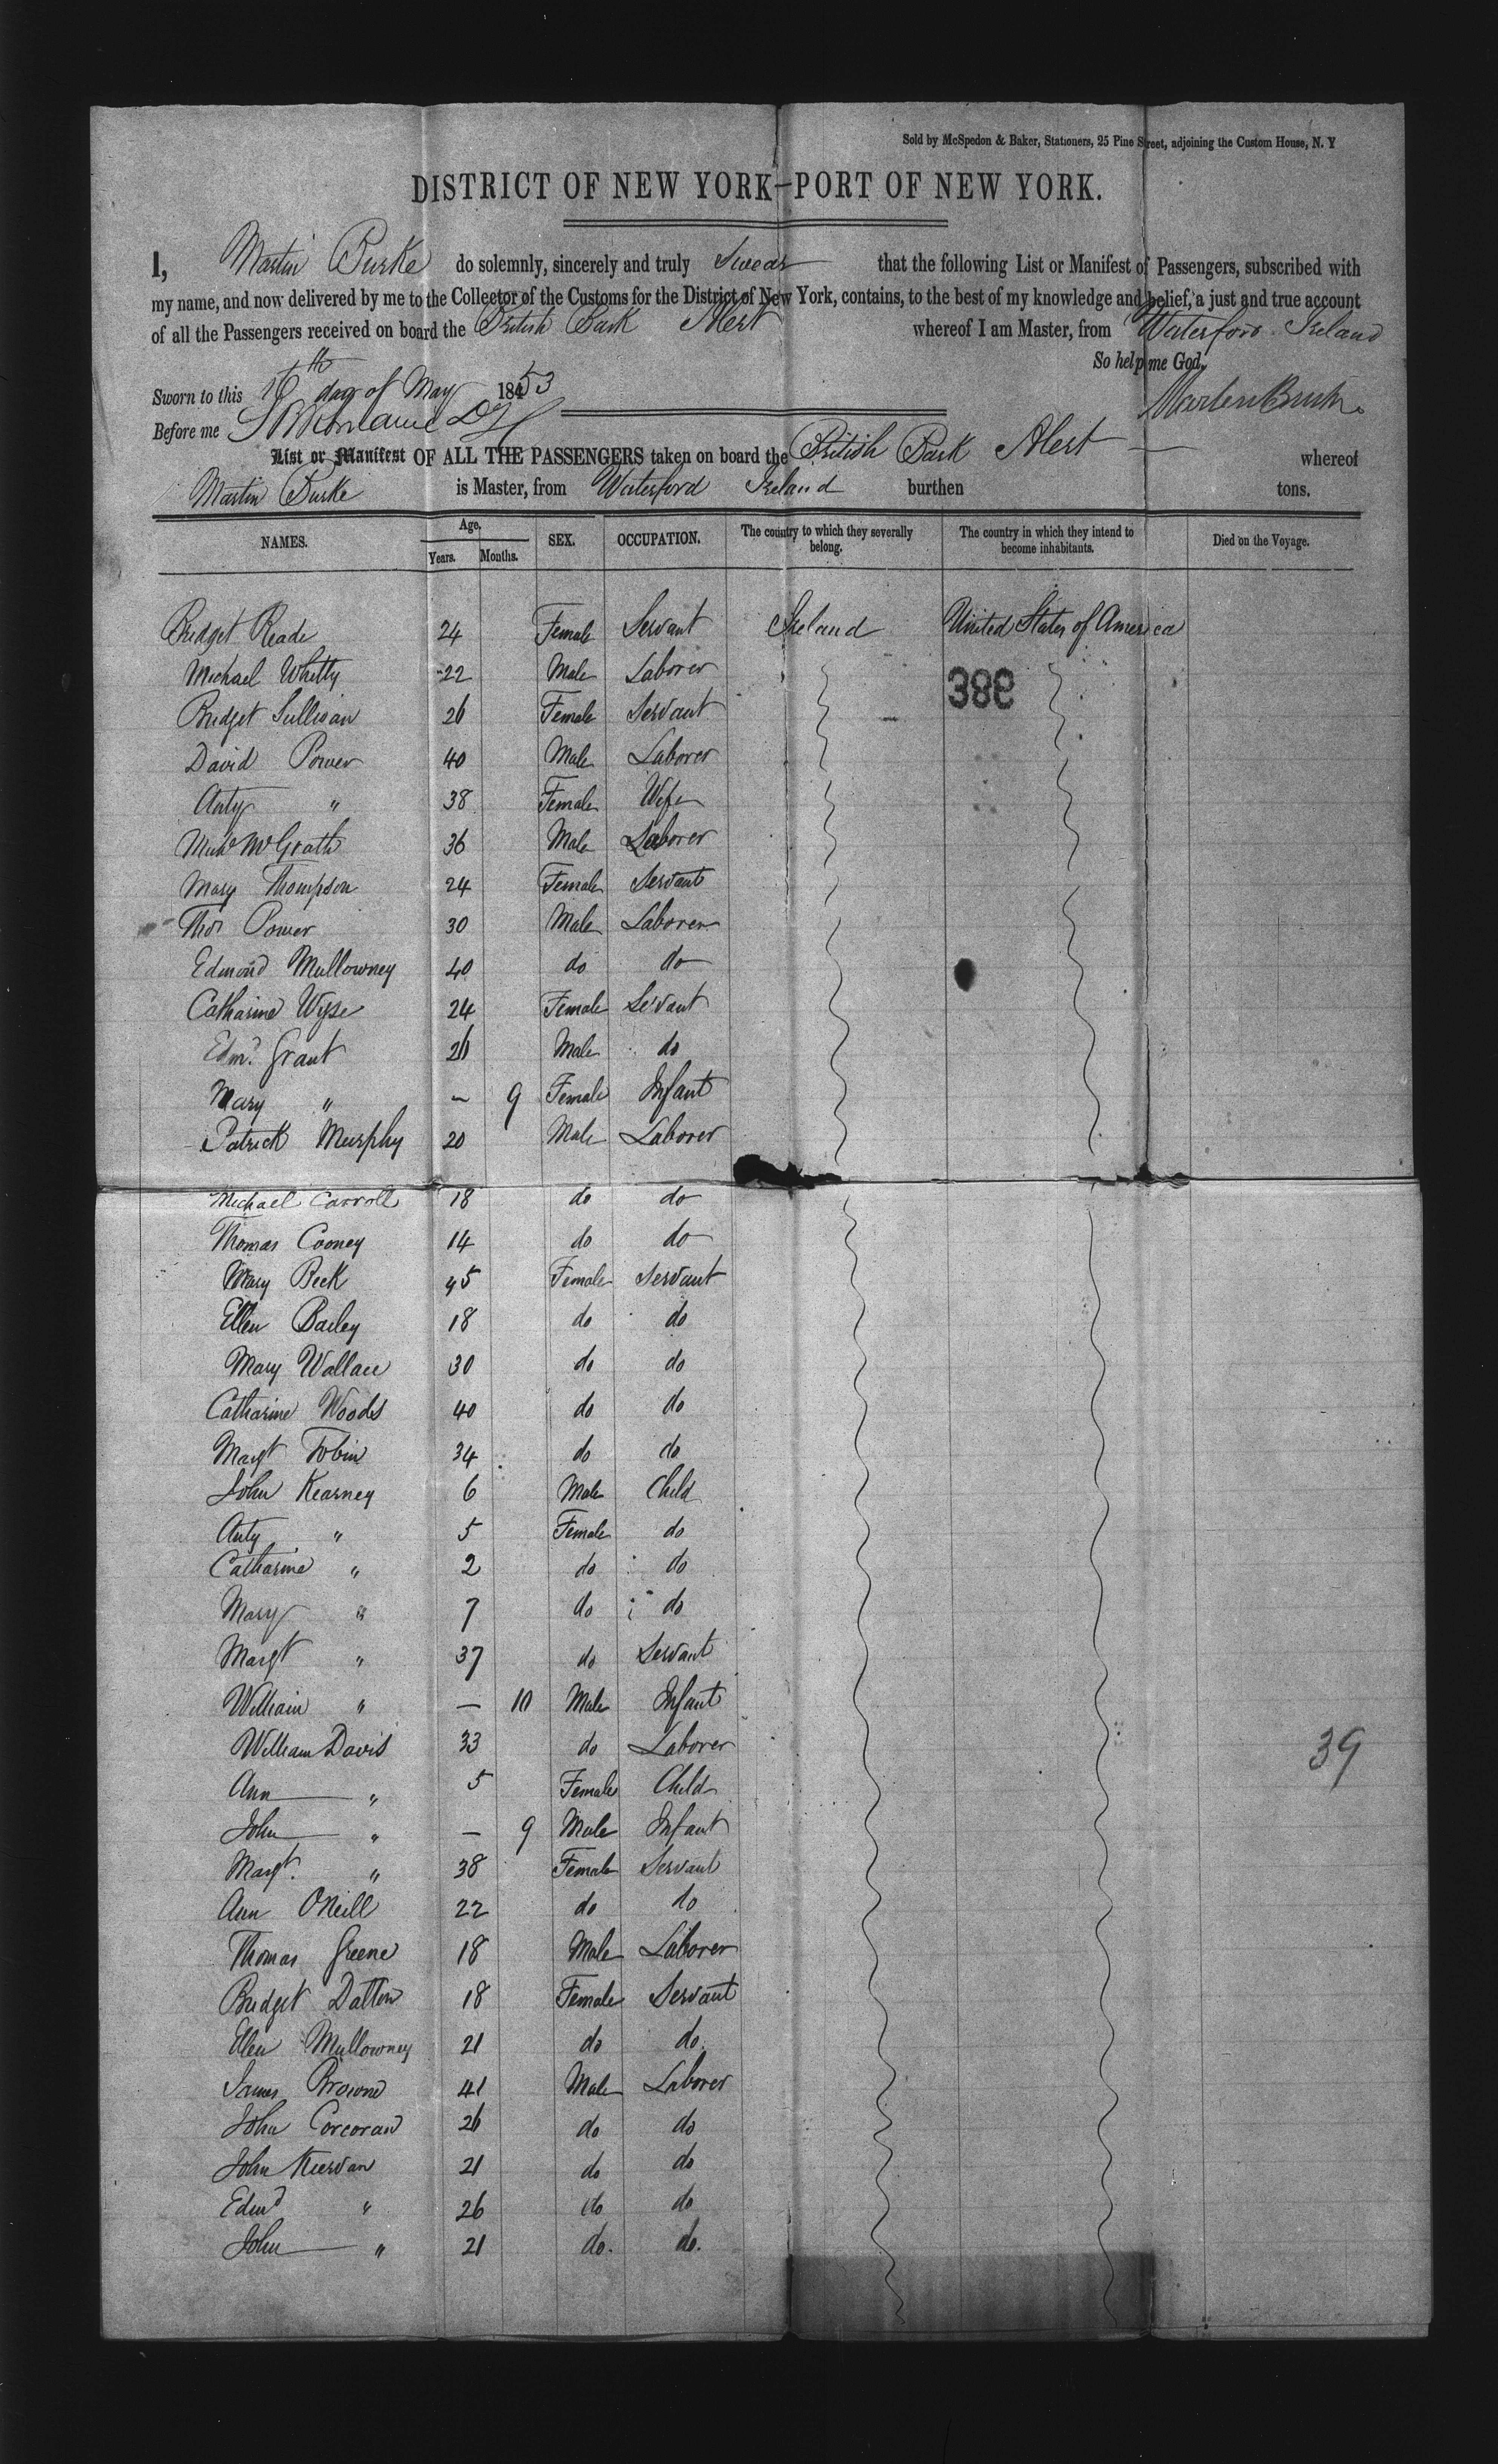 Sold by McSpedon & Baker, Stationers, 25 Pine Street, adjoining the Custom House, N. Y
DISTRICT OF NEW YORK—PORT OF NEW YORK.
I, Martin Burke do solemnly, sincerely and truly Swear that the following List or Manifest of Passengers, subscribed with
my name, and now delivered by me to the Collector of the Customs for the District of New York, contains, to the best of my knowledge and belief, a just and true account
of all the Passengers received on board the British Bark Alert whereof I am Master, from Waterford Ireland
So help me God.
Sworn to this 16th day of May 1853
Martin Burke
Before me
List or Manifest OF ALL THE PASSENGERS taken on board the British Bark Alert — whereof
Martin Burke is Master, from Waterford Ireland burthen tons.
NAMES. Age. Years. Months. SEX. OCCUPATION. The country to which they severally belong. The country in which they intend to become inhabitants. Died on the Voyage.
Bridget Reade 24 Female Servant Ireland United States of America
Michael Whitty 22 Male Laborer
386
Bridget Sullivan 26 Female Servant
David Power 40 Male Laborer
Anty " 38 Female Wife
Michl McGrath 36 Male Laborer
Mary Thompson 24 Female Servant
Thos Power 30 Male Laborer
Edmond Mullowney 40 do do
Catharine Wyse 24 Female Servant
Edmd Grant 26 Male do
Mary " — 9 Female Infant
Patrick Murphy 20 Male Laborer
Michael Carroll 18 do do
Thomas Cooney 14 do do
Mary Beck 45 Female Servant
Ellen Bailey 18 do do
Mary Wallace 30 do do
Catharine Woods 40 do do
Margt Tobin 34 do do
John Kearney 6 Male Child
Anty " 5 Female do
Catharine " 2 do do
Mary " 7 do do
Margt " 37 do Servant
William " — 10 Male Infant
William Davis 33 do Laborer
39
Ann " 5 Female Child
John " — 9 Male Infant
Margt. " 38 Female Servant
Ann ONeill 22 do do
Thomas Greene 18 Male Laborer
Bridget Dalton 18 Female Servant
Ellen Mullowney 21 do do.
James Browne 41 Male Laborer
John Corcoran 26 do do
John Kiervan 21 do do
Edmd " 26 do do
John " 21 do. do.